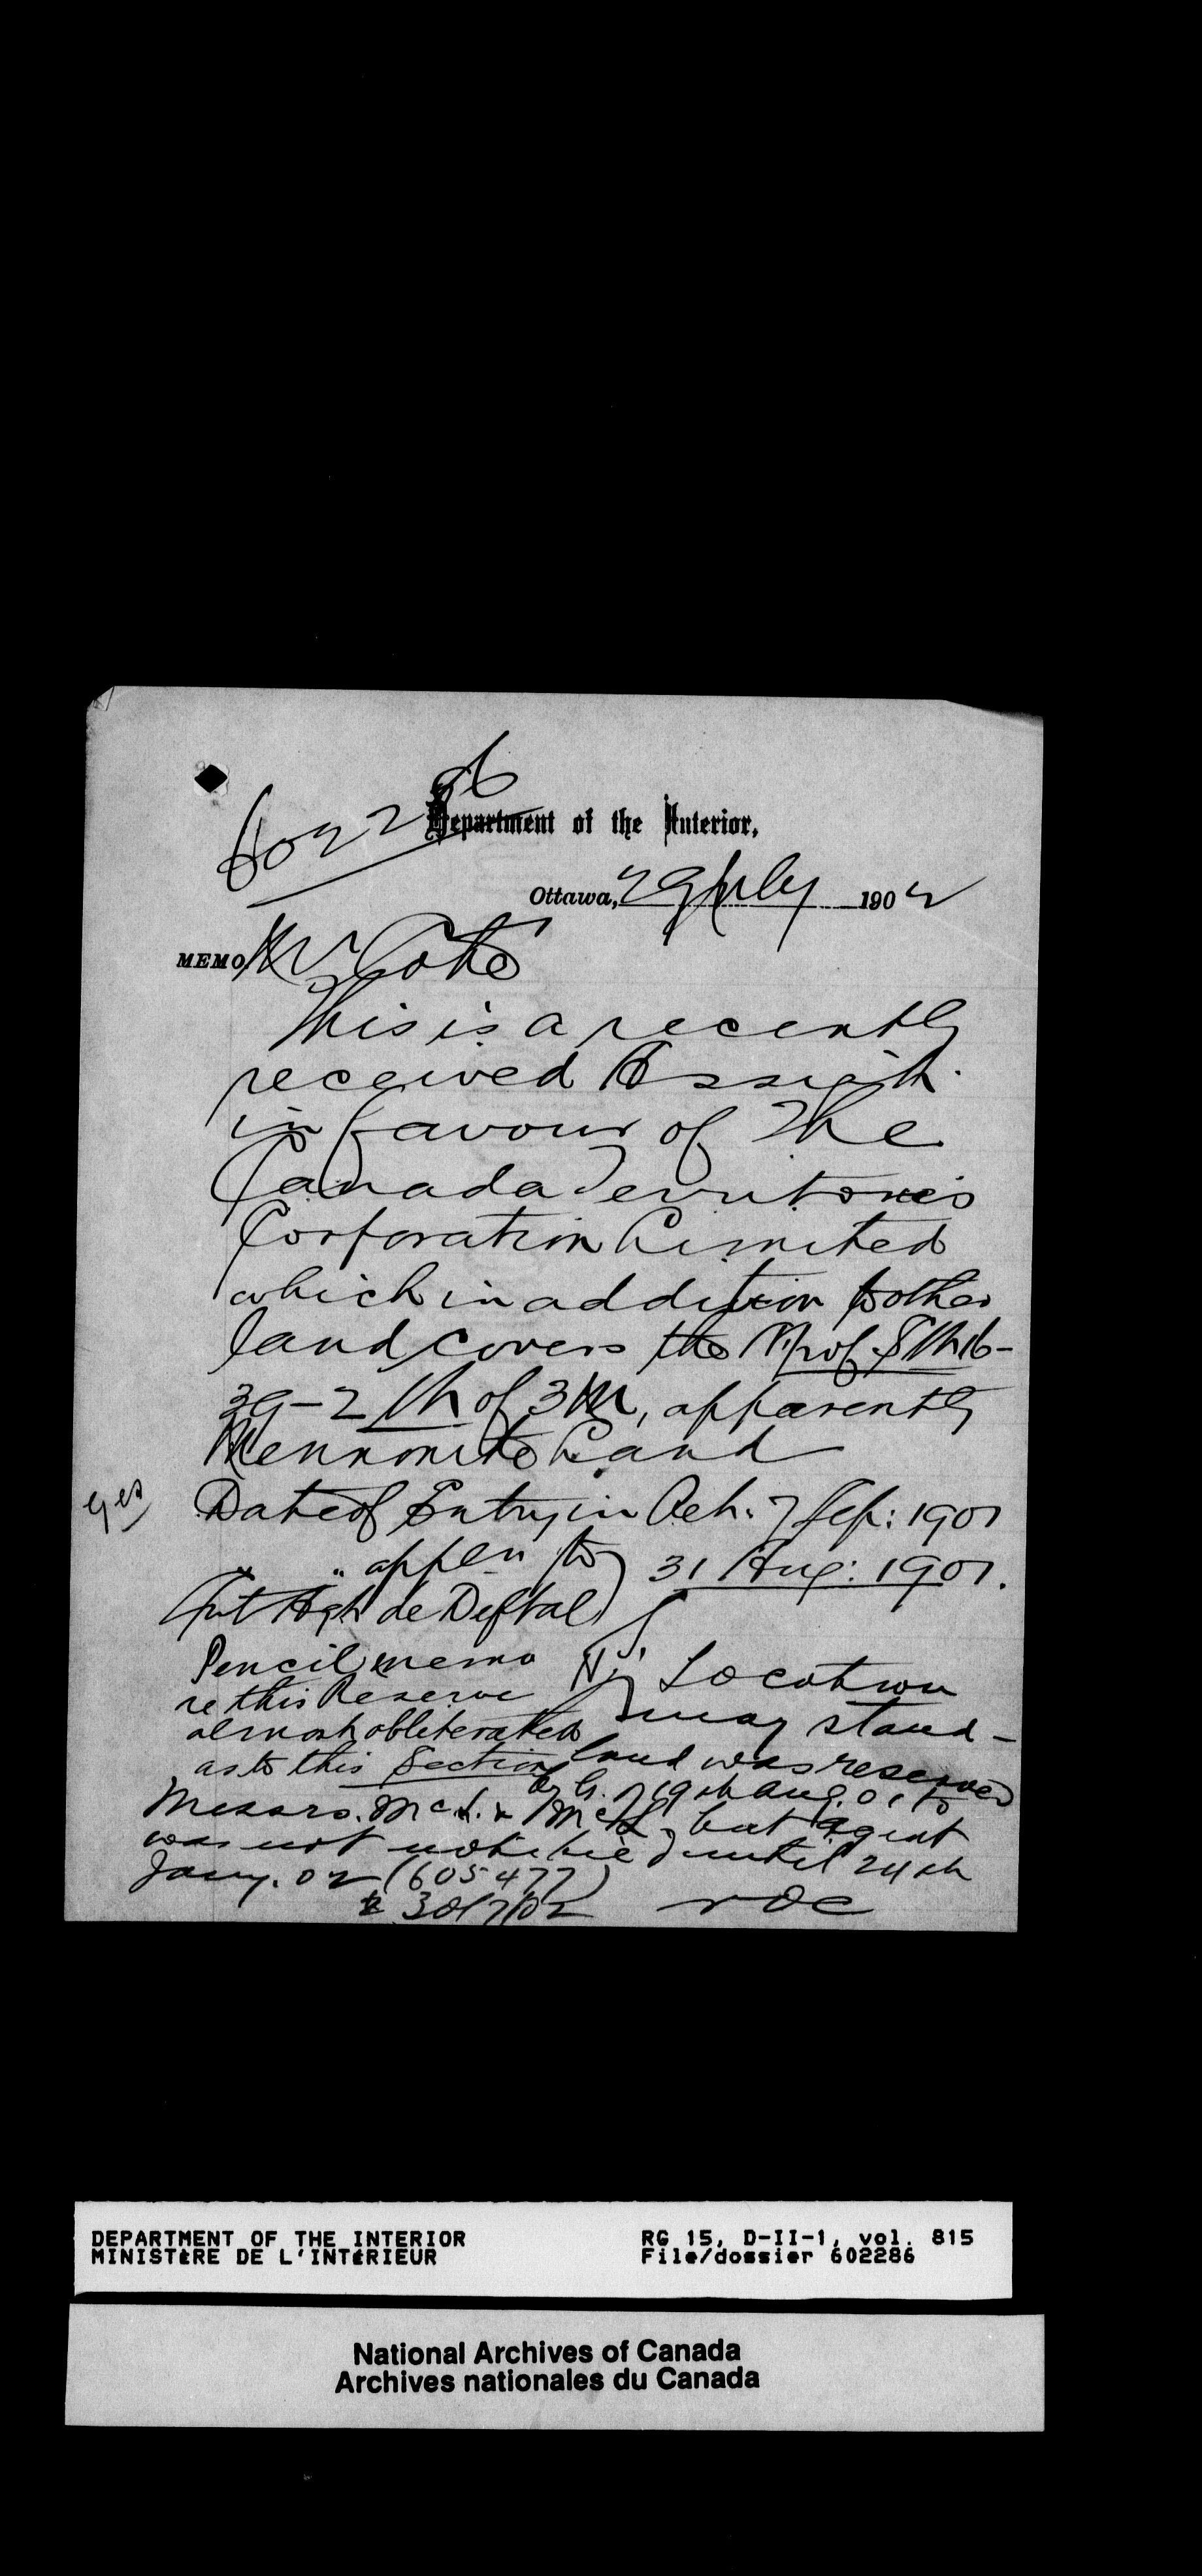 602286
Department of the Interior,
Ottawa, 29 July 1902
MEMO Mr Coté
This is a recently
received Assigt.
in favour of The
Canada Territories
Corporation Limited
which in addition to other
land covers the of 16-
39-2 of 3 M, apparently
Mennonite Land
yes
Date of Entry in 7 Sep: 1901
" " appln to 31 Aug: 1901.
Agt de
Pencil memo
re this Reserve
almost obliterated
as to this Section
Location
may stand -
land was reserved
19th Aug. 01 to
Messrs. Mc & Mc but agent
was not notified until 24th
Jany. 02 (605477)
30/7/02 NOC
DEPARTMENT OF THE INTERIOR
MINISTÈRE DE L'INTÉRIEUR
RG 15, D-II-1, vol. 815
File/dossier 602286
National Archives of Canada
Archives nationales du Canada